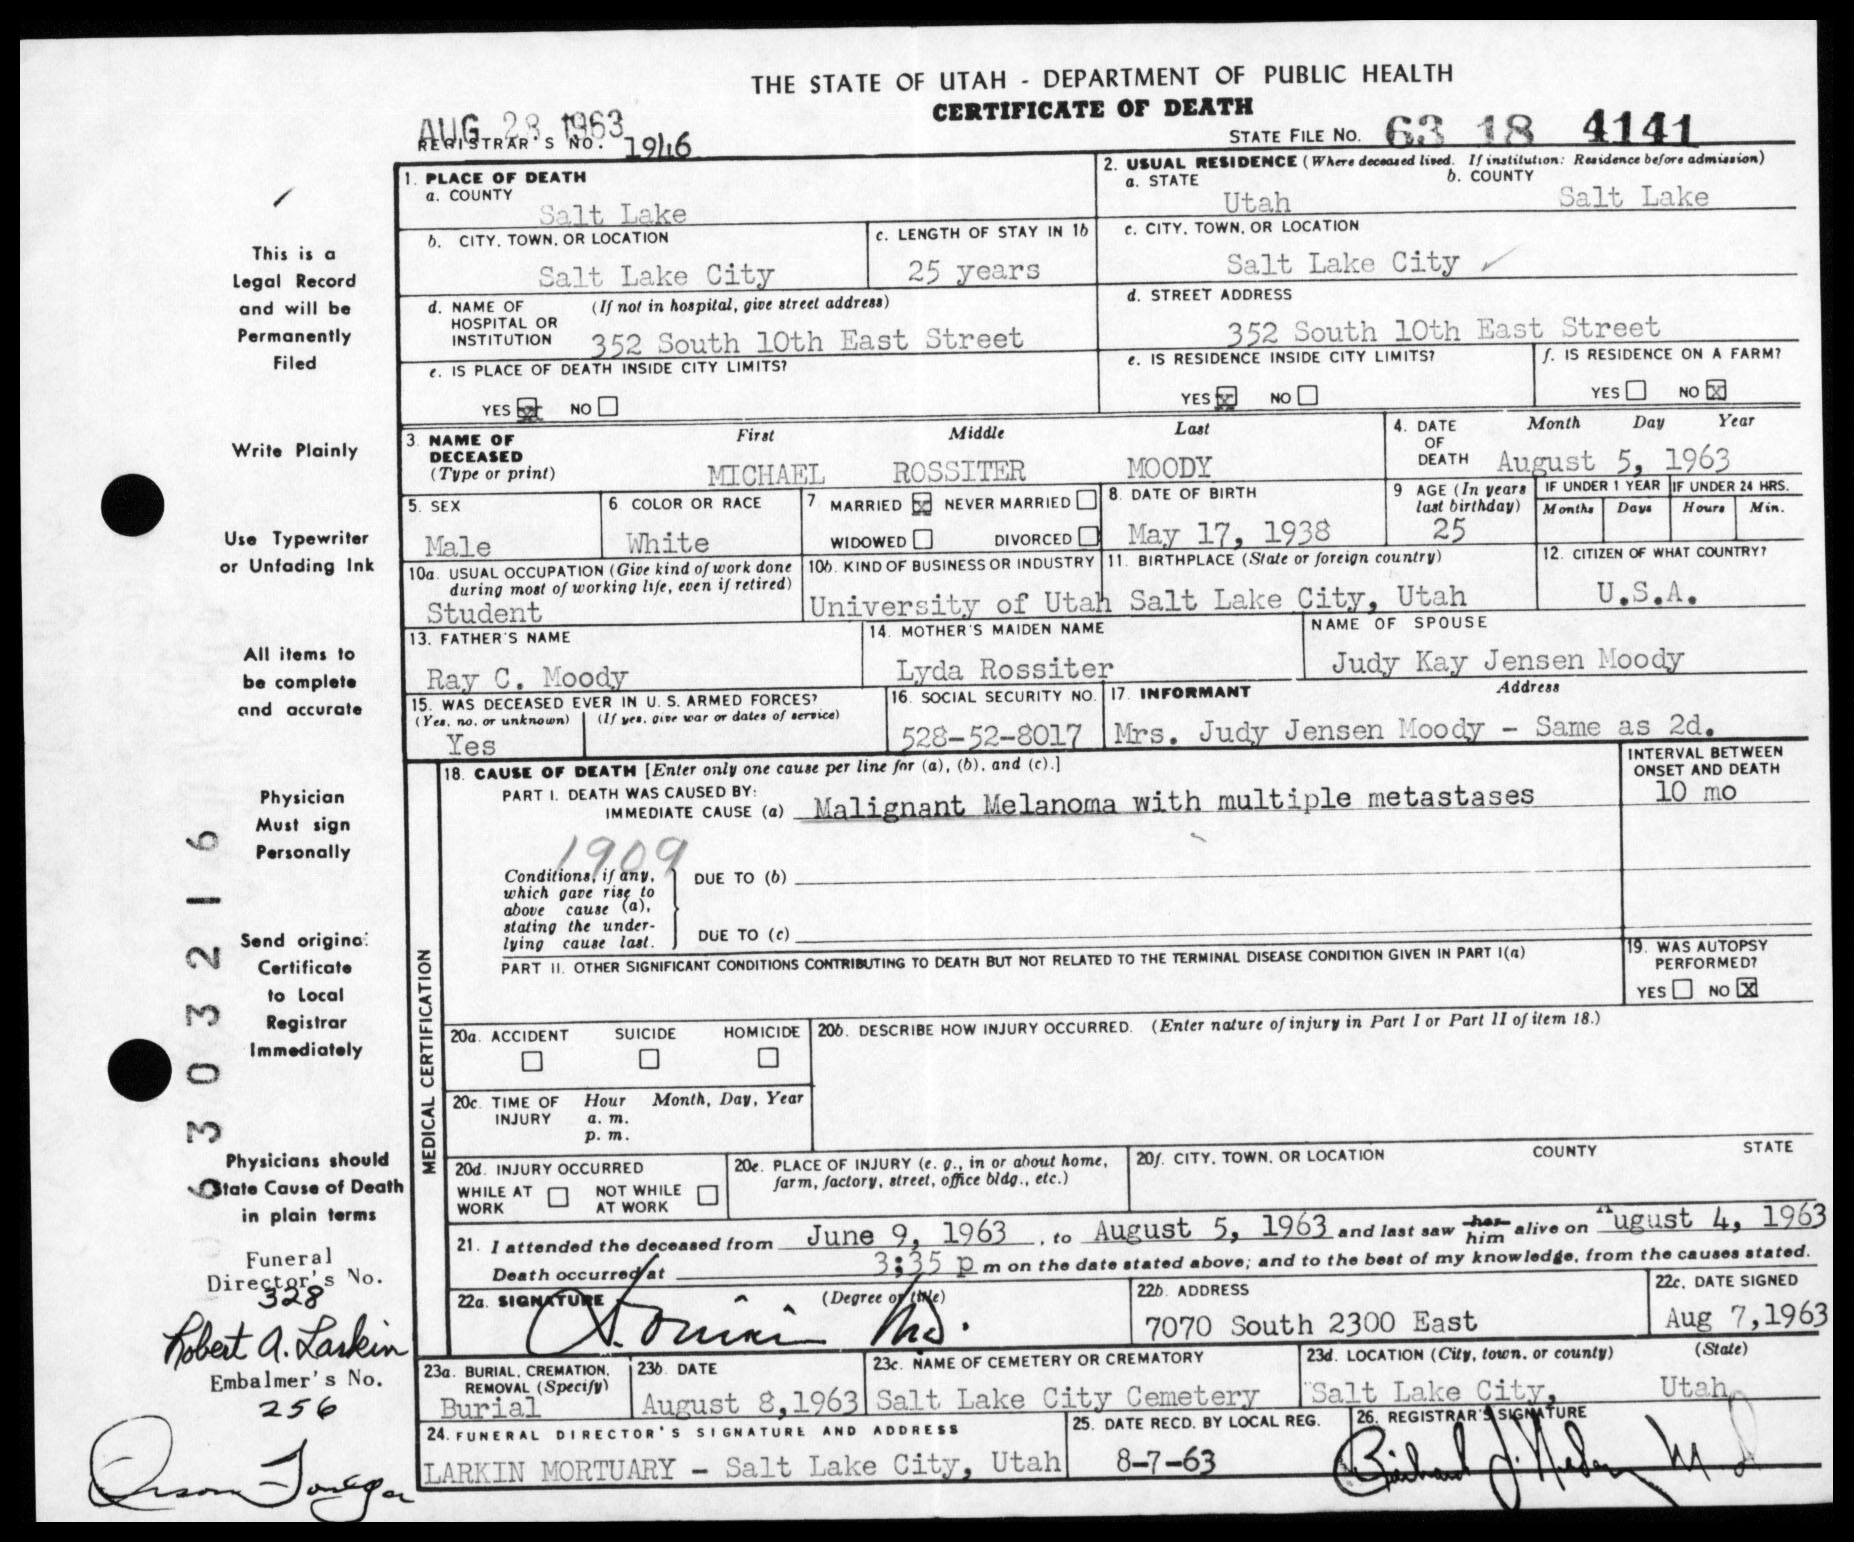 THE STATE OF UTAH - DEPARTMENT OF PUBLIC HEALTH
CERTIFICATE OF DEATH
AUG 28 1963
REGISTRAR'S NO. 1946
STATE FILE NO. 63 18 4141
1. PLACE OF DEATH
a. COUNTY
Salt Lake
2. USUAL RESIDENCE (Where deceased lived. If institution: Residence before admission)
a. STATE b. COUNTY
Utah Salt Lake
b. CITY, TOWN, OR LOCATION
Salt Lake City
c. LENGTH OF STAY IN 1b
25 years
c. CITY, TOWN, OR LOCATION
Salt Lake City
d. NAME OF HOSPITAL OR INSTITUTION (If not in hospital, give street address)
352 South 10th East Street
d. STREET ADDRESS
352 South 10th East Street
e. IS PLACE OF DEATH INSIDE CITY LIMITS?
YES X NO
e. IS RESIDENCE INSIDE CITY LIMITS?
YES X NO
f. IS RESIDENCE ON A FARM?
YES NO X
3. NAME OF DECEASED (Type or print)
First Middle Last
MICHAEL ROSSITER MOODY
4. DATE OF DEATH Month Day Year
August 5, 1963
5. SEX
Male
6 COLOR OR RACE
White
7 MARRIED X NEVER MARRIED
WIDOWED DIVORCED
8. DATE OF BIRTH
May 17, 1938
9 AGE (In years last birthday)
25
IF UNDER 1 YEAR
Months Days
IF UNDER 24 HRS.
Hours Min.
10a. USUAL OCCUPATION (Give kind of work done during most of working life, even if retired)
Student
10b. KIND OF BUSINESS OR INDUSTRY
University of Utah
11. BIRTHPLACE (State or foreign country)
Salt Lake City, Utah
12. CITIZEN OF WHAT COUNTRY?
U.S.A.
13. FATHER'S NAME
Ray C. Moody
14. MOTHER'S MAIDEN NAME
Lyda Rossiter
NAME OF SPOUSE
Judy Kay Jensen Moody
15. WAS DECEASED EVER IN U. S. ARMED FORCES?
(Yes, no. or unknown) (If yes, give war or dates of service)
Yes
16. SOCIAL SECURITY NO.
528-52-8017
17. INFORMANT Address
Mrs. Judy Jensen Moody - Same as 2d.
MEDICAL CERTIFICATION
18. CAUSE OF DEATH [Enter only one cause per line for (a), (b), and (c).]
INTERVAL BETWEEN ONSET AND DEATH
PART I. DEATH WAS CAUSED BY:
IMMEDIATE CAUSE (a) Malignant Melanoma with multiple metastases
10 mo
1909
Conditions, if any, which gave rise to above cause (a), stating the underlying cause last.
DUE TO (b)
DUE TO (c)
PART II. OTHER SIGNIFICANT CONDITIONS CONTRIBUTING TO DEATH BUT NOT RELATED TO THE TERMINAL DISEASE CONDITION GIVEN IN PART I(a)
19. WAS AUTOPSY PERFORMED?
YES NO X
20a. ACCIDENT SUICIDE HOMICIDE
20b. DESCRIBE HOW INJURY OCCURRED. (Enter nature of injury in Part I or Part II of item 18.)
20c. TIME OF INJURY Hour Month, Day, Year
a. m.
p. m.
20d. INJURY OCCURRED
WHILE AT WORK NOT WHILE AT WORK
20e. PLACE OF INJURY (e. g., in or about home, farm, factory, street, office bldg., etc.)
20f. CITY, TOWN, OR LOCATION COUNTY STATE
21. I attended the deceased from June 9, 1963, to August 5, 1963 and last saw her him alive on August 4, 1963
Death occurred at 3:35 p m on the date stated above; and to the best of my knowledge, from the causes stated.
22a. SIGNATURE (Degree or title)
22b. ADDRESS
7070 South 2300 East
22c. DATE SIGNED
Aug 7,1963
23a. BURIAL, CREMATION, REMOVAL (Specify)
Burial
23b. DATE
August 8,1963
23c. NAME OF CEMETERY OR CREMATORY
Salt Lake City Cemetery
23d. LOCATION (City, town, or county) (State)
Salt Lake City, Utah
24. FUNERAL DIRECTOR'S SIGNATURE AND ADDRESS
LARKIN MORTUARY - Salt Lake City, Utah
25. DATE RECD. BY LOCAL REG.
8-7-63
26. REGISTRAR'S SIGNATURE
Richard J. Nelson M D
This is a
Legal Record
and will be
Permanently
Filed
Write Plainly
Use Typewriter
or Unfading Ink
All items to
be complete
and accurate
Physician
Must sign
Personally
Send original
Certificate
to Local
Registrar
Immediately
Physicians should
State Cause of Death
in plain terms
6303216
Funeral
Director's No.
328
Robert A. Larkin
Embalmer's No.
256